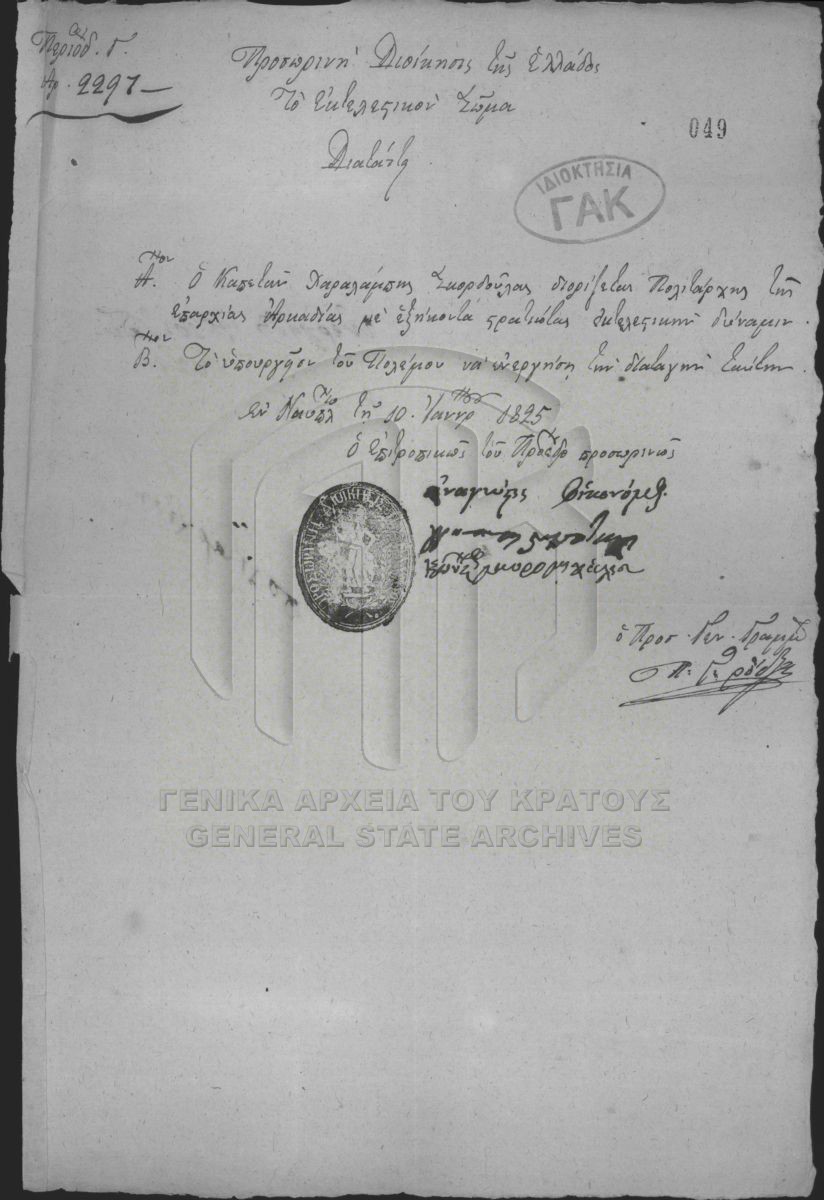 Περίοδ. Γ.
Αρ. 2297
Προσωρινὴ Διοίκησις τῆς Ἑλλάδος
Τὸ Ἐκτελεστικὸν Σῶμα
049
Διατάττει
ΙΔΙΟΚΤΗΣΙΑ
ΓΑΚ
Α.ον Ὁ Καπετὰν Χαραλάμπης Σκορδούλας διορίζεται Πολιτάρχης τῆς
ἐπαρχίας Ἀρκαδίας μὲ ἑξήκοντα στρατιώτας ἐκτελεστικὴν δύναμιν.
Β.ον Τὸ ὑπουργεῖον τοῦ Πολέμου νὰ ἐνεργήσῃ τὴν διαταγὴν ταύτην.
ἐν Ναυπλίῳ τῇ 10. Ἰαννρίου 1825
ὁ ἐπιτροπικῶς τοῦ Προέδρου προσωρινῶς
ΠΡΟΣΩΡΙΝΗ ΔΙΟΙΚΗΣΙΣ
ὁ Προσ. Γεν. Γραμμ
ΓΕΝΙΚΑ ΑΡΧΕΙΑ ΤΟΥ ΚΡΑΤΟΥΣ
GENERAL STATE ARCHIVES